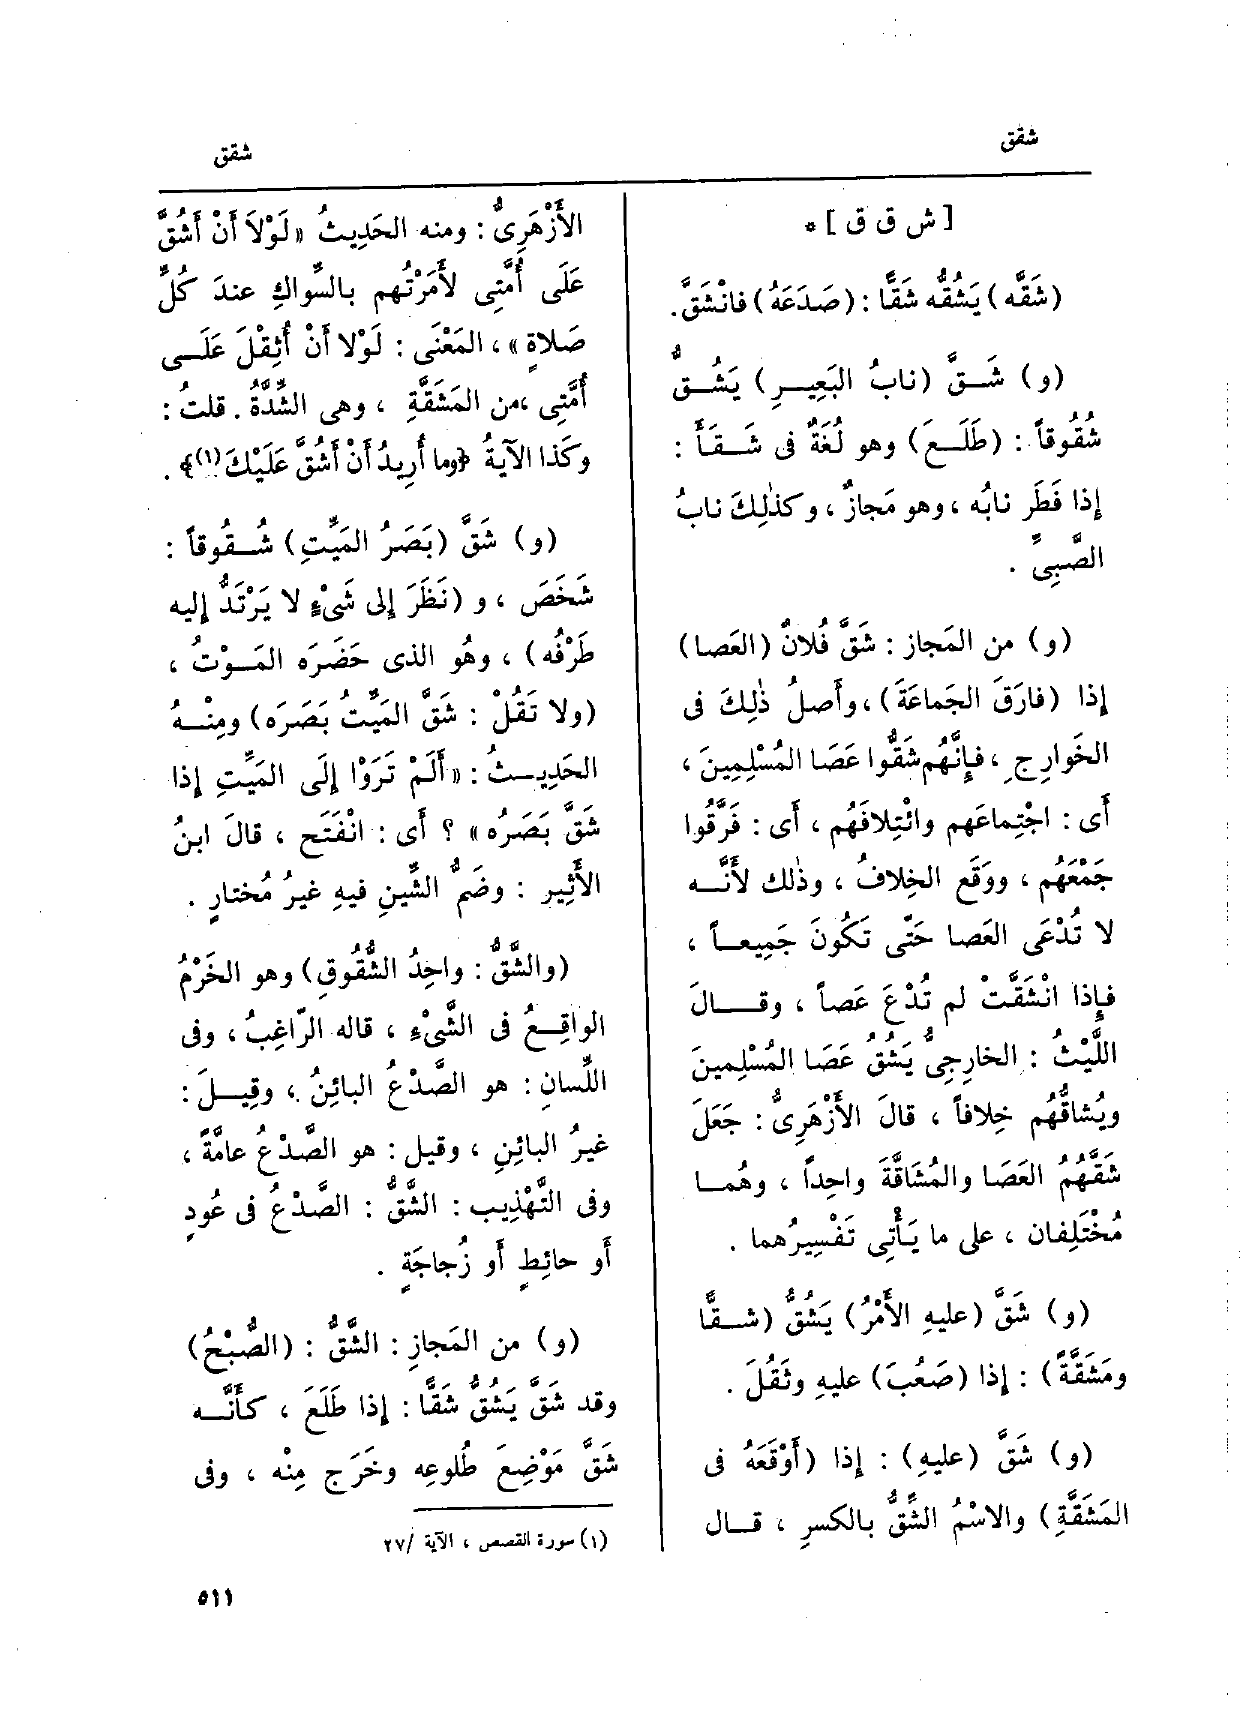 شقق
شقق
[ ش ق ق ] *
(شَقَّه) يَشُقُّه شَقًّا : (صَدَعَهُ) فانْشَقَّ.
(و) شَــقَّ (نابُ البَعِيــرِ) يَشُــقُّ
شُقُوقاً : (طَلَــعَ) وهو لُغَةٌ فى شَــقَأَ :
إذا فَطَر نابُه ، وهو مَجازٌ ، وكذٰلِكَ نابُ
الصَّبِىِّ .
(و) من المَجاز : شَقَّ فُلانٌ (العَصا)
إذا (فارَقَ الجَماعَةَ) ، وأَصلُ ذٰلِكَ فى
الخَوارِجِ ، فإِنَّهُم شَقُّوا عَصَا المُسْلِمِينَ ،
أَى : اجْتِماعَهم وائْتِلافَهُم ، أَى : فَرَّقُوا
جَمْعَهُم ، ووَقَع الخِلافُ ، وذٰلك لأَنَّــه
لا تُدْعَى العَصا حَتَّى تَكُونَ جَمِيعــاً ،
فإِذا انْشَقَّتْ لم تُدْعَ عَصاً ، وقــالَ
اللَّيْثُ : الخارِجِىُّ يَشُقُّ عَصَا المُسْلِمينَ
ويُشاقُّهُم خِلافاً ، قالَ الأَزْهَرِىُّ : جَعَلَ
شَقَّهُمُ العَصَا والمُشَاقَّةَ واحِداً ، وهُمــا
مُخْتَلِفان ، على ما يَأْتِى تَفْسِيرُهما .
(و) شَقَّ (عليهِ الأَمْرُ) يَشُقُّ (شــقًّا
ومَشَقَّةً) : إذا (صَعُبَ) عليهِ وثَقُلَ .
(و) شَقَّ (عليهِ) : إذا (أَوْقَعَهُ فى
المَشَقَّةِ) والاسْمُ الشِّقُّ بالكسرِ ، قــال
الأَزْهَرِىُّ : ومنه الحَدِيثُ « لَوْلاَ أَنْ أَشُقَّ
عَلَى أُمَّتِى لأَمَرْتُهم بالسِّواكِ عندَ كُلِّ
صَلاةٍ » ، المَعْنَى : لَوْلا أَنْ أُثِقْلَ عَلَــى
أُمَّتِى ،من المَشَقَّةِ ، وهى الشِّدَّةُ . قلتُ :
وكَذا الآيةُ ﴿وما أُرِيدُ أَنْ أَشُقَّ عَلَيْكَ(١)﴾ .
(و) شَقَّ (بَصَرُ المَيِّتِ) شُــقُوقاً :
شَخَصَ ، و (نَظَرَ إلى شَىْءٍ لا يَرْتَدُّ إليه
طَرْفُه) ، وهُو الذى حَضَرَه المَــوْتُ ،
(ولا تَقُلْ : شَقَّ المَيِّتُ بَصَرَه) ومِنْــهُ
الحَدِيــثُ : « أَلَمْ تَرَوْا إِلَى المَيِّتِ إذا
شَقَّ بَصَرُه » ؟ أَى : انْفَتَح ، قالَ ابنُ
الأَثِير : وضَمُّ الشِّينِ فيهِ غيرُ مُختارٍ .
(والشَّقُّ : واحِدُ الشُّقُوقِ) وهو الخَرْمُ
الواقِــعُ فى الشَّىْءِ ، قاله الرّاغِبُ ، وفى
اللِّسانِ : هو الصَّدْعُ البائِنُ ، وقِيــلَ :
غيرُ البائِنِ ، وقيل : هو الصَّدْعُ عامَّةً ،
وفى التَّهْذِيب : الشَّقُّ : الصَّدْعُ فى عُودٍ
أَو حائِطٍ أَو زُجاجَةٍ .
(و) من المَجازِ : الشَّقُّ : (الصُّبْحُ)
وقد شَقَّ يَشُقُّ شَقًّا : إذا طَلَعَ ، كأَنَّــه
شَقَّ مَوْضِعَ طُلُوعِه وخَرَج مِنْه ، وفى
(١) سورة القصص ، الآية /٢٧
٥١١